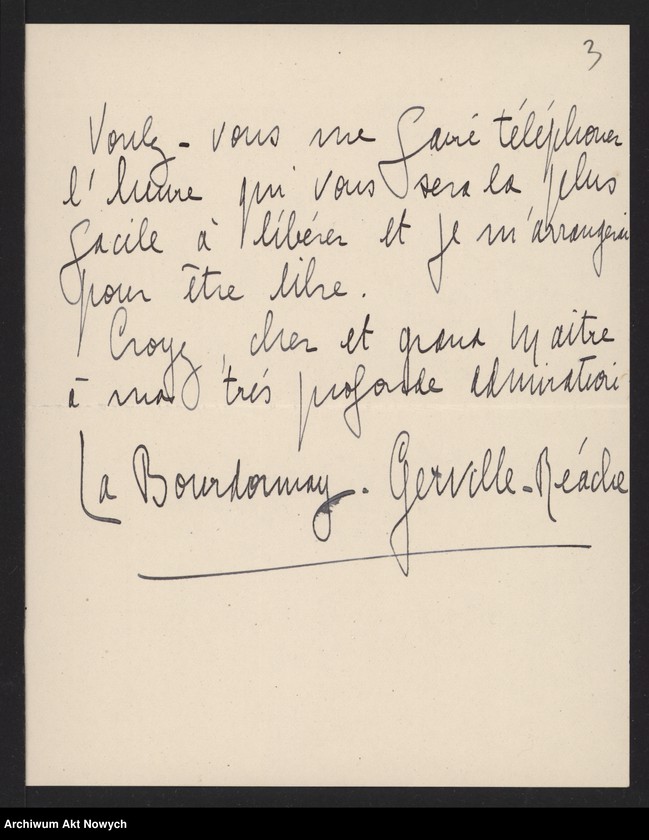 3
Voulez-vous me faire téléphoner
l'heure qui vous sera la plus
facile à libérer et je m'arrangerai
pour être libre.
Croyez, cher et grand Maître
à ma très profonde admiration
La Bourdonnay-Gerville-Réache
Archiwum Akt Nowych